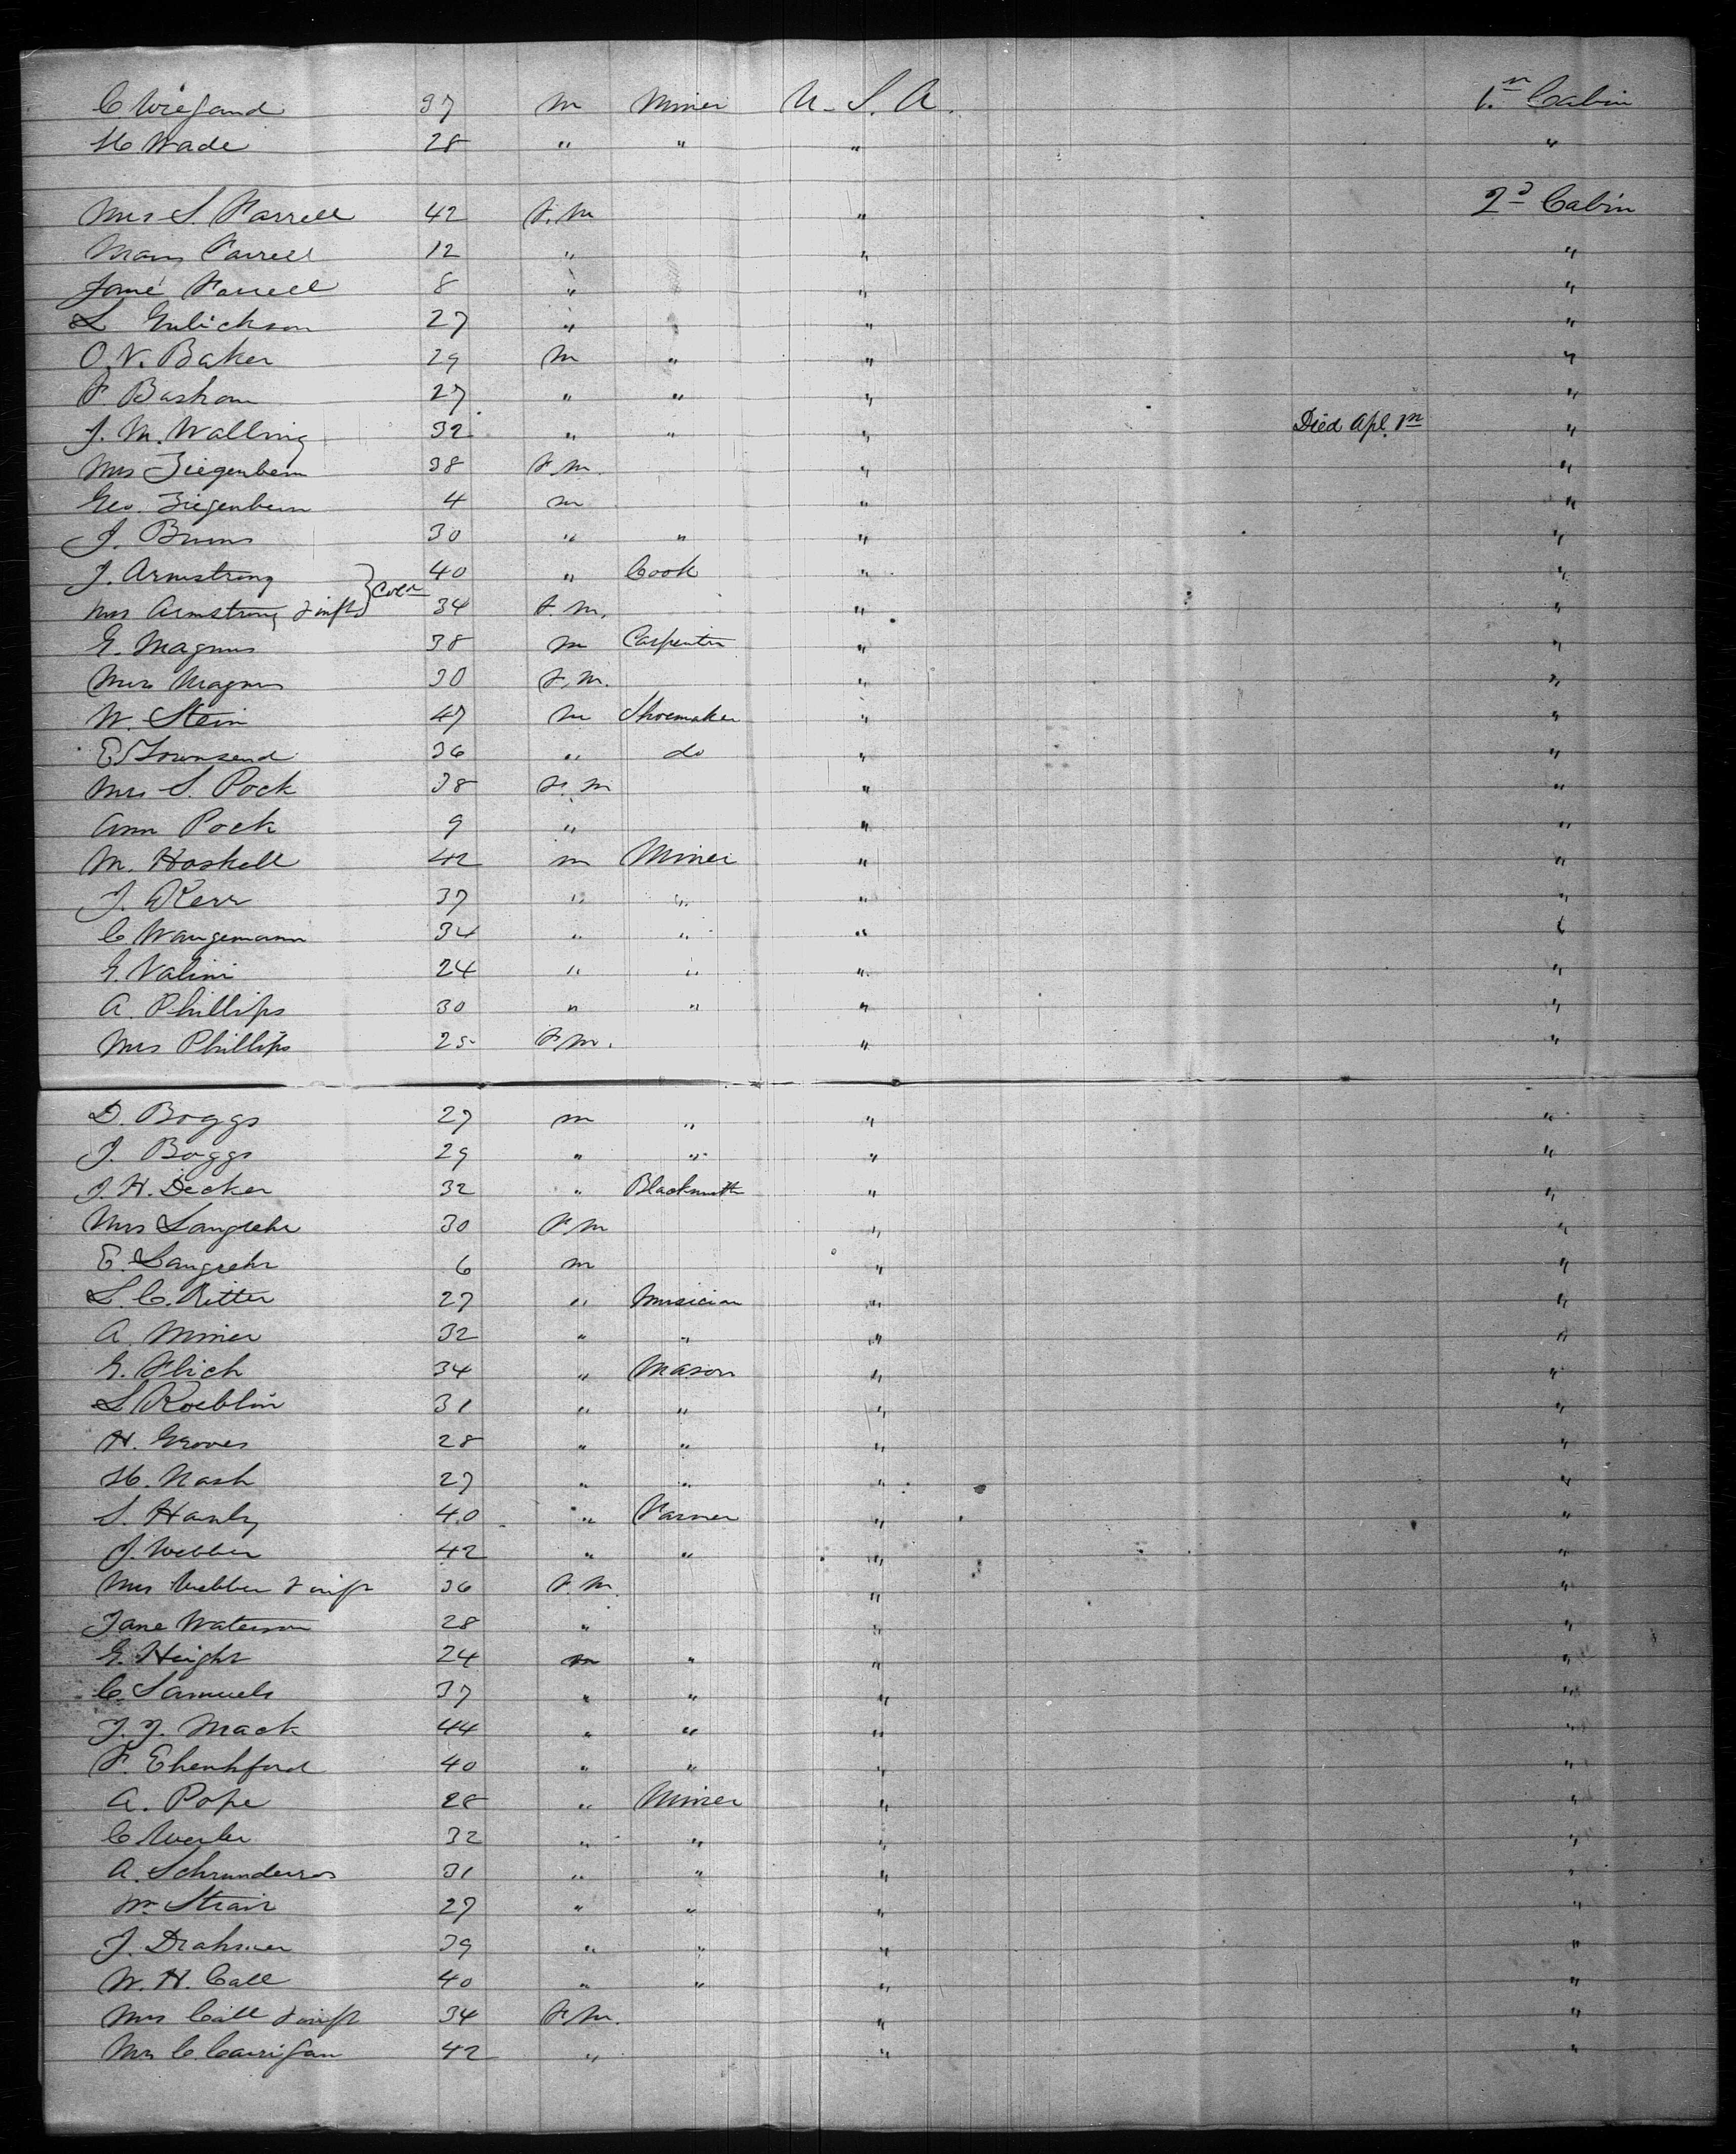 C Wiegand 37 m Miner U. S. A. 1st Cabin
H Wade 28 " " " "
Mrs S. Farrell 42 F. m " 2d Cabin
Mary Farrell 12 " " "
Jane Farrell 8 " " "
L. 27 " " "
O. N. Baker 29 m " " "
F. Basham 27 " " " "
J. M. Walling 32 " " " Died Apl. 1st "
Mrs Ziegenbein 38 F. m. " "
Geo. Ziegenbein 4 m " "
J. Bruns 30 " " " "
J. Armstrong } Cold 40 " Cook " "
Mrs Armstrong & inft } 34 F. m. " "
G. Magnus 38 m Carpenter " "
Mrs Magnus 30 F. m. " "
W. Stein 47 m Shoemaker " "
E Townsend 36 " do " "
Mrs S. Pock 38 F. m " "
Ann Pock 9 " " "
M. Haskell 42 m Miner " "
J. Kerr 37 " " " "
C Wangemann 34 " " " "
G. Valini 24 " " " "
A. Phillips 30 " " " "
Mrs Phillips 25 F. m. " "
D. Boggs 27 m " " "
J. Boggs 29 " " " "
J. H. Decker 32 " Blacksmith " "
Mrs Langrehr 30 F. m " "
E. Langrehr 6 m " "
L. C. Ritter 27 " Musician " "
A. Miner 32 " " " "
G. Flich 34 " Mason " "
L Koeblin 31 " " " "
H. Groves 28 " " " "
H. Nash 27 " " " "
S. Hanly 40 " Farmer " "
J. Webber 42 " " " "
Mrs Webber & inft 36 F. m. " "
Jane Waterson 28 " " "
G. Height 24 m " " "
C. Samuels 37 " " " "
J. J. Mack 44 " " " "
F. Ehenhford 40 " " " "
A. Pope 28 " Miner " "
C 32 " " " "
A. 31 " " " "
Wm Strair 27 " " " "
J. Drahmer 39 " " " "
W. H. Call 40 " " " "
Mrs Call & inft 34 F. m. " "
Mrs C. Carrigan 42 " " "